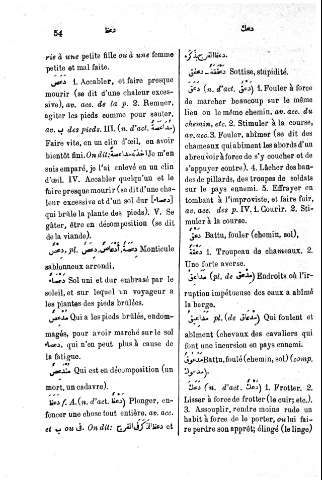 54
دعظ
دعك
rie à une petite fille ou à une femme
petite et mal faite.
دَعَصَ 1. Accabler, et faire presque
mourir (se dit d'une chaleur exces-
sive), av. acc. de la p. 2. Remuer,
agiter les pieds comme pour sauter,
av. ب des pieds. III. (n. d'act.
Faire vite, en un clin d'œil, en avoir
bientôt fini. On dit: Je m'en
suis emparé, je l'ai enlevé en un clin
d'œil. IV. Accabler quelqu'un et le
faire presque mourir (se dit d'une cha-
leur excessive et d'un sol dur
qui brûle la plante des pieds). V. Se
gâter, être en décomposition (se dit
de la viande).
دِعْصٌ, pl. Monticule
sablonneux arrondi.
دعصاء Sol uni et dur embrasé par le
soleil, et sur lequel un voyageur a
les plantes des pieds brûlées.
Qui a les pieds brûlés, endom-
magés, pour avoir marché sur le sol
دعصاء, qui n'en peut plus à cause de
la fatigue.
Qui est en décomposition (un
mort, un cadavre).
دعظ f. A. (n. d'act. دعظ) Plonger, en-
foncer une chose tout entière, av. acc.
et ب ou فى. On dit: et
Sottise, stupidité.
دعق (n. d'act. دعق) 1. Fouler à force
de marcher beaucoup sur le même
lieu ou le même chemin, av. acc. du
chemin, etc. 2. Stimuler à la course,
av. acc. 3. Fouler, abîmer (se dit des
chameaux qui abîment les abords d'un
abreuvoir à force de s'y coucher et de
s'appuyer contre). 4. Lâcher des ban-
des de pillards, des troupes de soldats
sur le pays ennemi. 5. Effrayer en
tombant à l'improviste, et faire fuir,
av. acc. des p. IV. 1. Courir. 2. Sti-
muler à la course.
دعق Battu, fouler (chemin, sol),
1. Troupeau de chameaux. 2.
Une forte averse.
(pl. de مدعق) Endroits où l'ir-
ruption impétueuse des eaux a abîmé
la berge.
pl. (de مدعاق) Qui foulent et
abîment (chevaux des cavaliers qui
font une incursion en pays ennemi.
مدعوق Battu, foulé (chemin, sol) (comp.
دعك (n. d'act. دعك) 1. Frotter. 2.
Lisser à force de frotter (le cuir; etc.).
3. Assouplir, rendre moins rude un
habit à force de le porter, ou lui fai-
re perdre son apprêt; élingé (le linge)